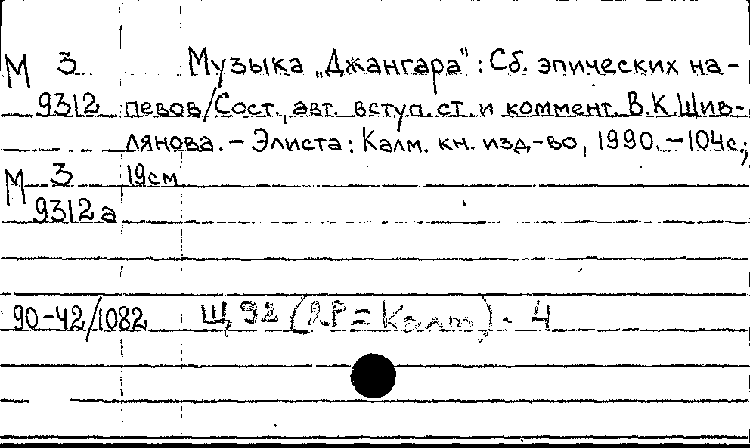 М 3 Музыка „Джангара": Сб. эпических на-
9312 певов/Сост., авт. вступ. ст. и коммент. В.К.Шив-
лянова. – Элиста: Калм. кн. изд-во, 1990. – 104с.;
М 3 19см
9312а
90-42/1082 Щ92(2Р=Калм)-4